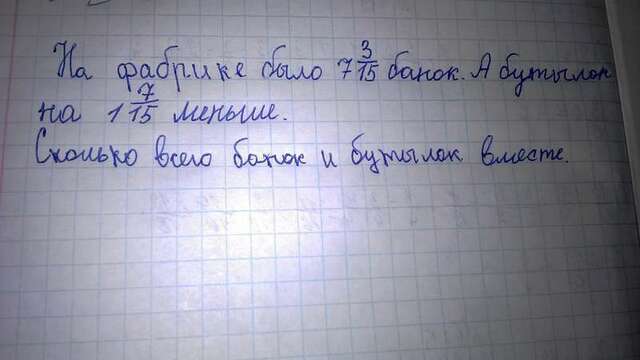 На фабрике было 7 3/15 банок. А бутылок
на 1 7/15 меньше.
Сколько всего банок и бутылок вместе.